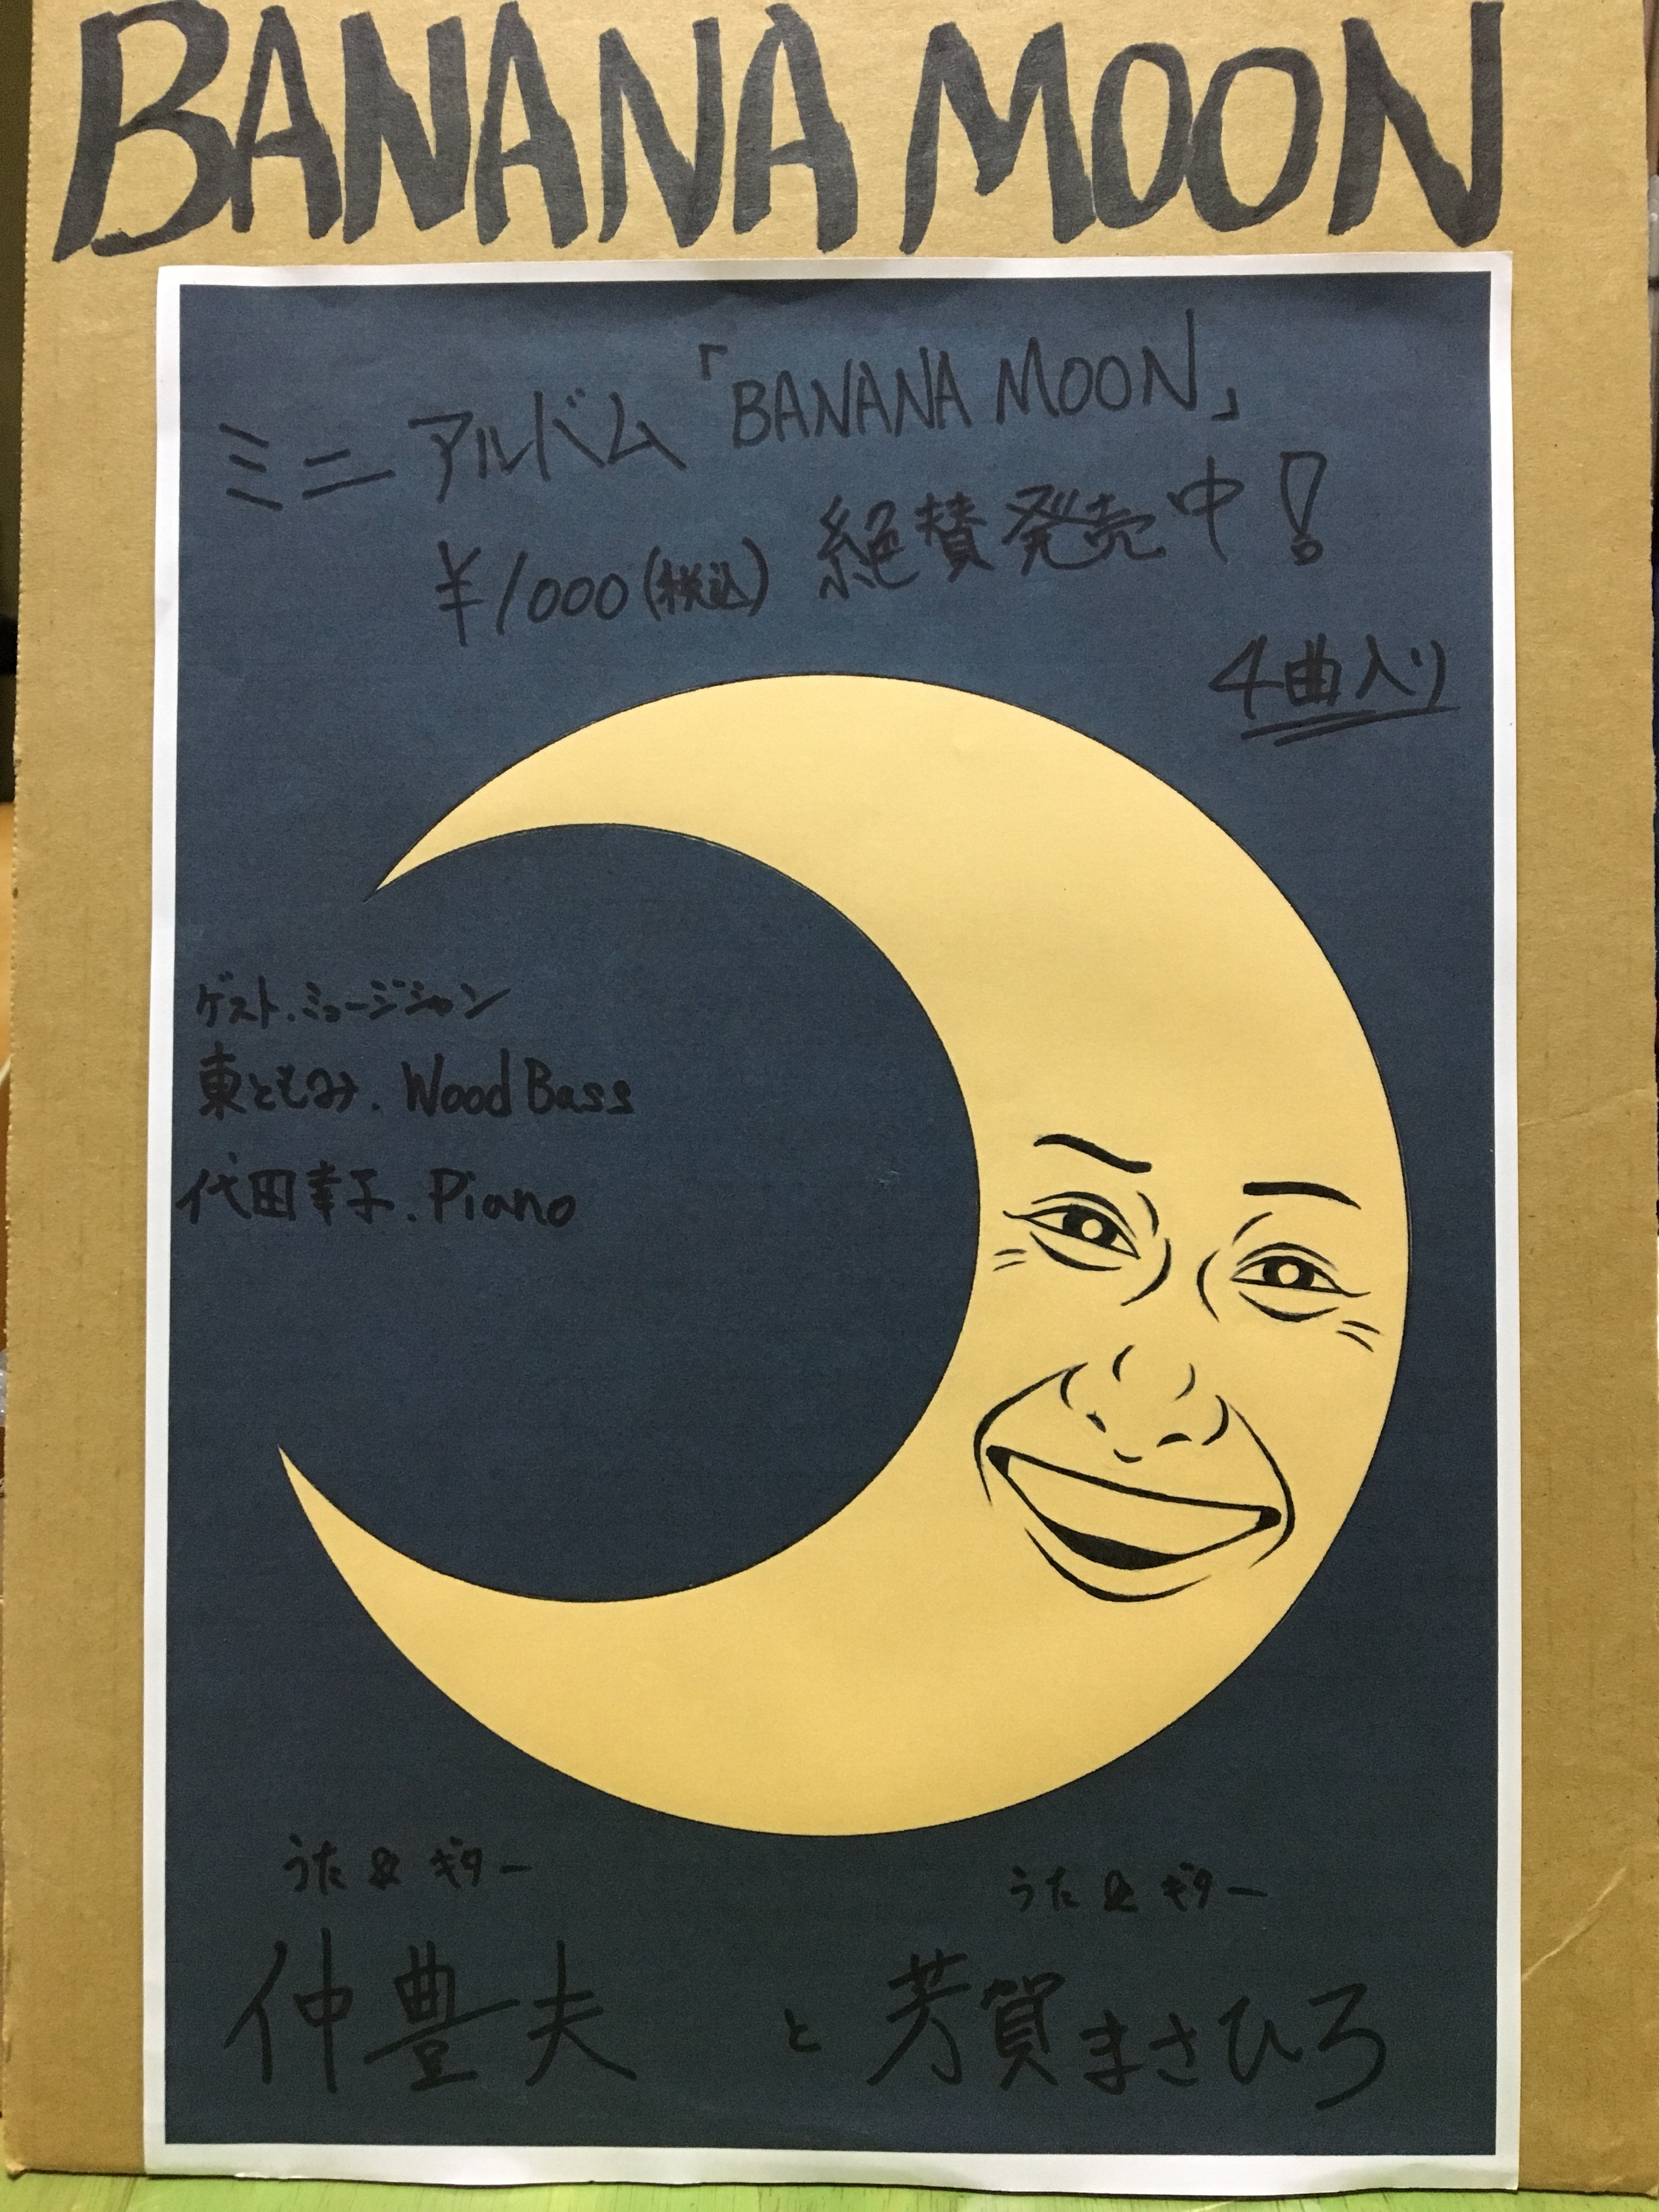 BANANA MOON
ミニアルバム「BANANA MOON」
¥1000(税込) 絶賛発売中!
4曲入り
ゲスト.ミュージシャン
東ともみ. Wood Bass
代田幸子. Piano
うた & ギター うた & ギター
仲豊夫 と 芳賀まさひろ